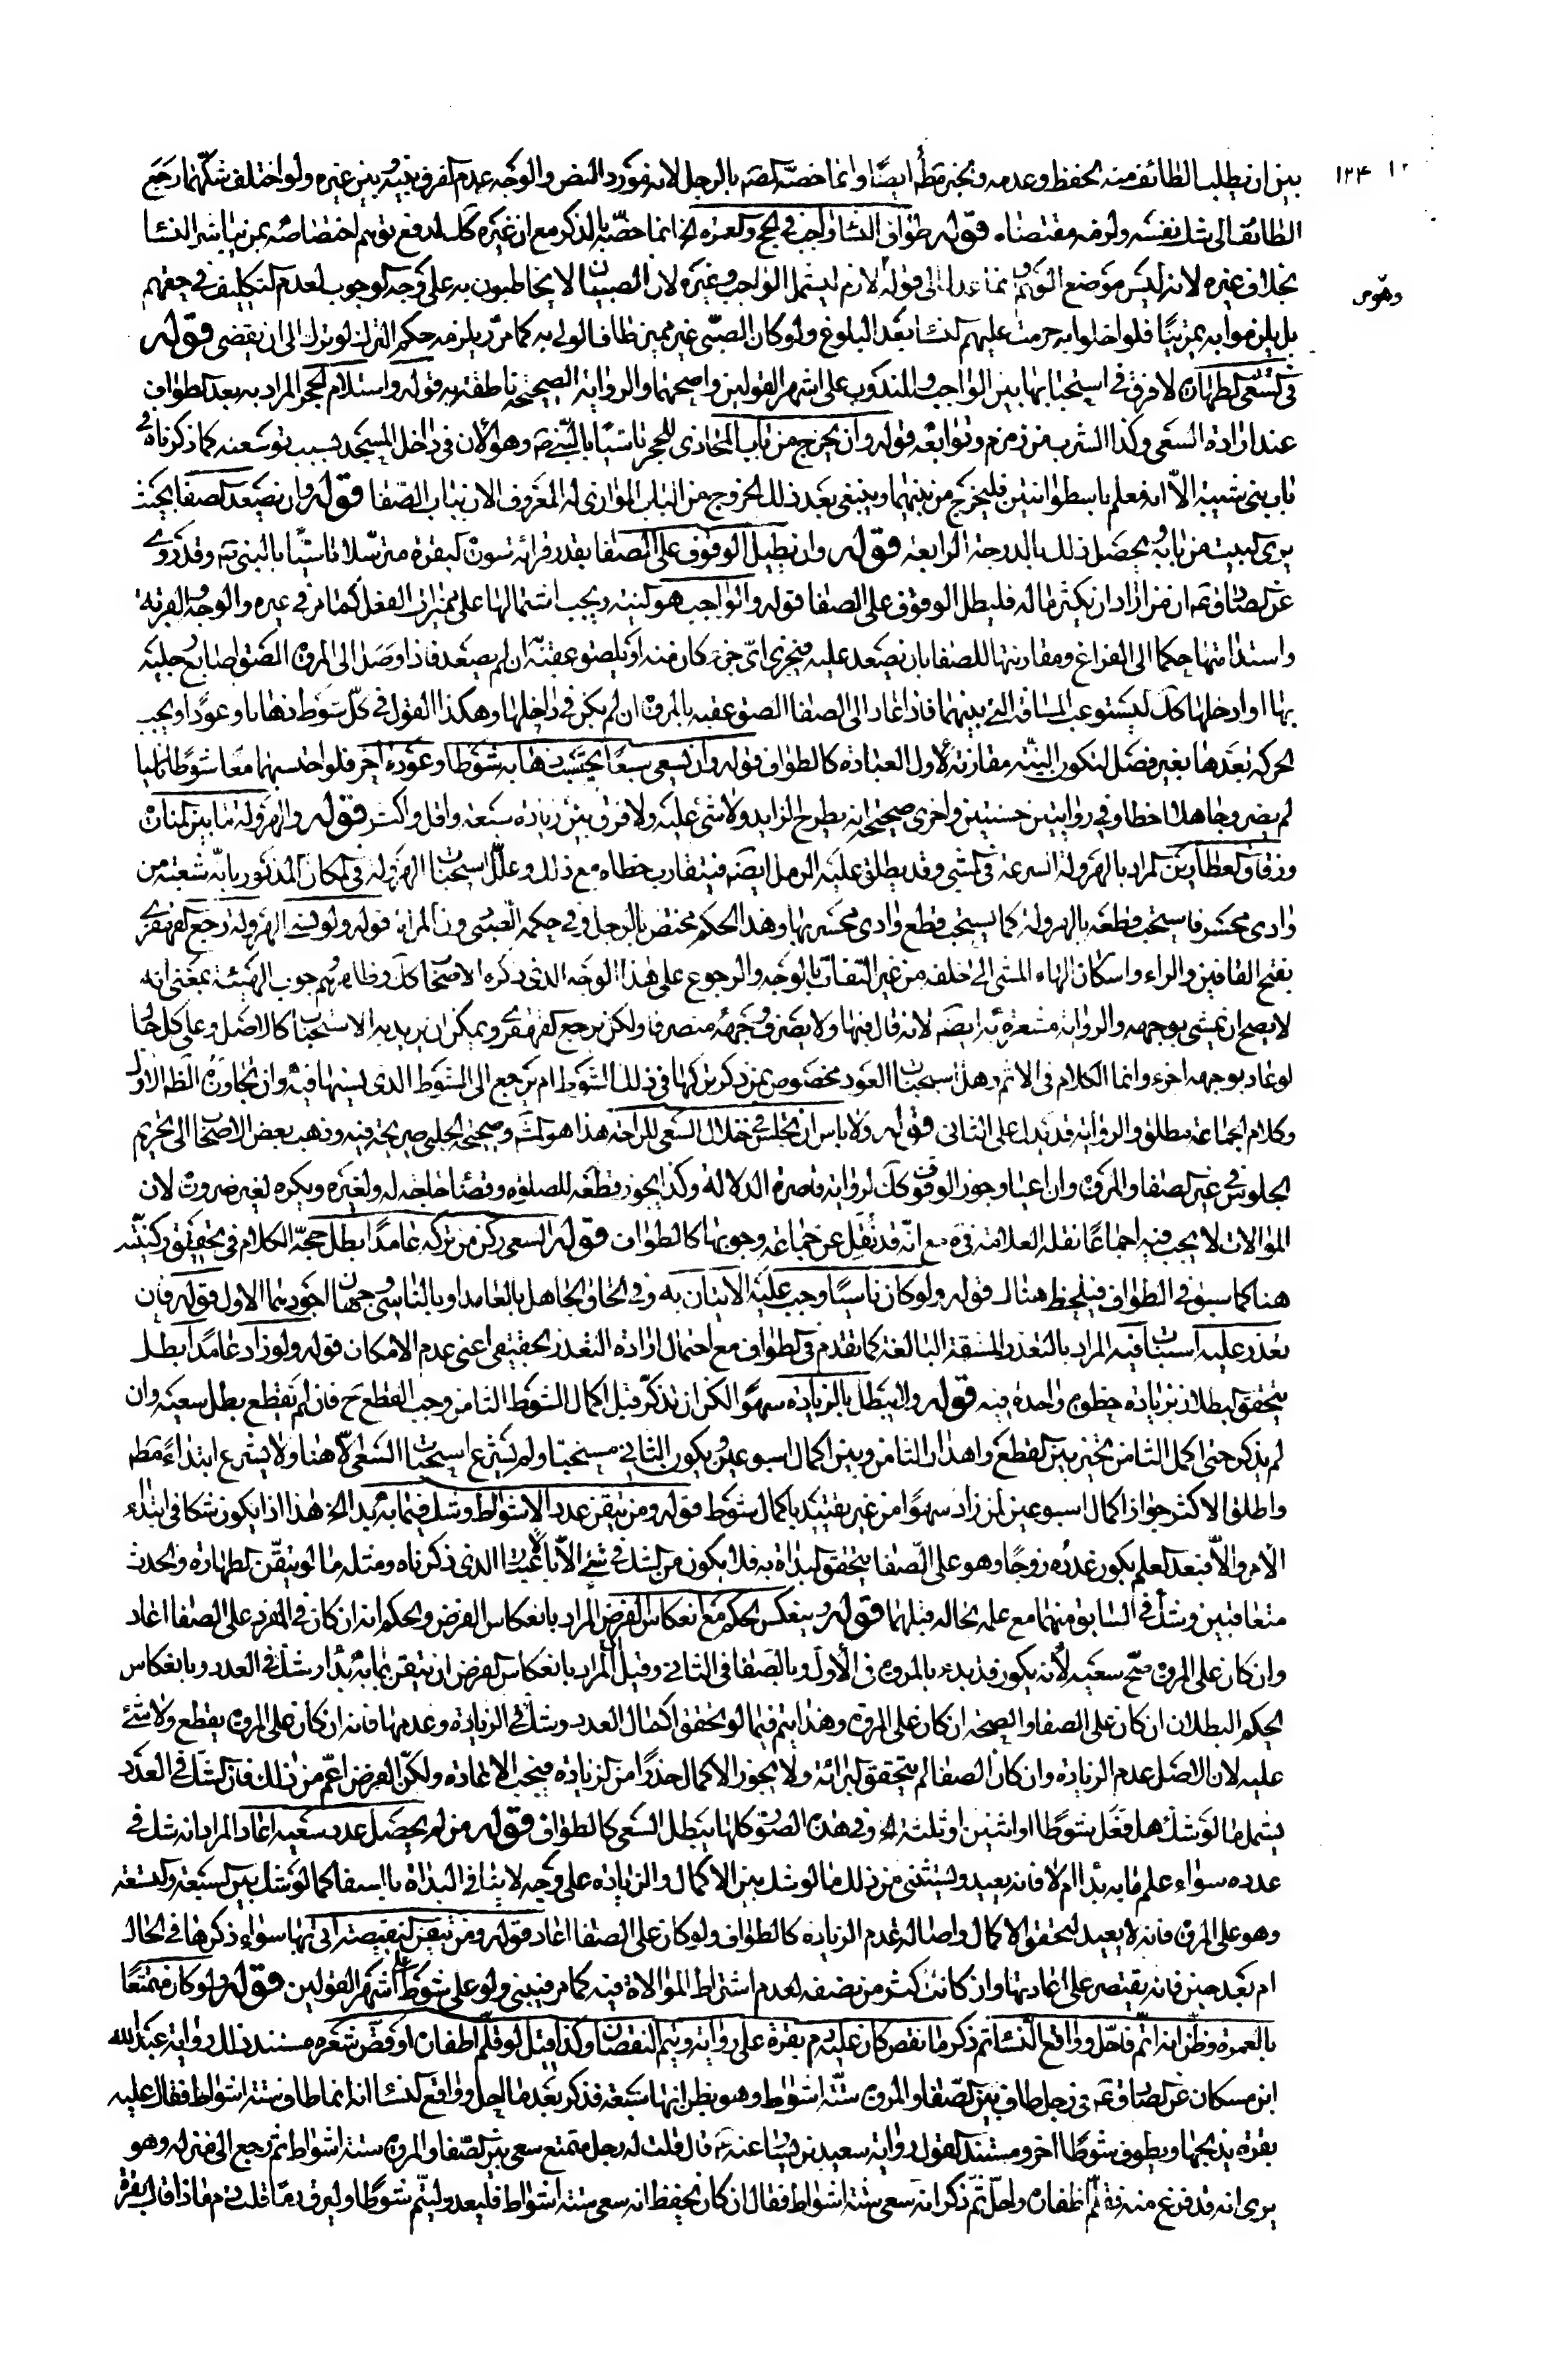 ۱۲۴
بين ان يطلب الطائف منه الحفظ وعدمه وبخبر مطم ايضا وانما خصه كصه بالرجل لانه مورد النص والوجه عدم الفرق بينه وبين غيره ولو اختلف شكهما رجع
الطائف الى شك نفسه ولزمه مقتضاه قوله طواف النسا واجب في الحج والعمرة الخ انما خصه بالذكر مع ان غيره كك لدفع توهم اختصاصه بمن يباشر النسا
بخلاف غيره لانه ليس موضع التوهم وانما عدل الى قوله لازم ليشمل الواجب وغيره لان الصبيان لا يخاطبون به على وجه الوجوب لعدم التكليف في حقهم
وهو س
بل يلزموا به تمرينا فلو اخلوا به حرمت عليهم النسا بعد البلوغ ولو كان الصبي غير مميز طاف الولي به كما مر ويلزمه حكم الترك لو تركه الى ان يقضى قوله
في السعي الطهارة لا فرق في استحبابها بين الواجب والمندوب على اشهر القولين واصحهما والرواية الصحيحة ناطقة به قوله واستلام الحجر المراد به بعد الطواف
عند ارادة السعي وكذا الشرب من زمزم وتوابعه قوله وان يخرج من باب المحاذي للحجر تاسيا بالنبي ص وهو الان في داخل المسجد بسبب توسعته كما ذكرناه في
باب بني شيبة الا انه معلم باسطوانتين فليخرج من بينهما وينبغي بعد ذلك الخروج من الباب الموازي له المعروف الان بباب الصفا قوله وان يصعد الصفا بحيث
يرى البيت من بابه ويحصل ذلك بالدرجة الرابعة قوله وان يطيل الوقوف على الصفا بقدر قرائة سورة البقرة مترسلا تاسيا بالنبي ص وقد روى
عن الصادق ع ان من اراد ان يكثر ماله فليطل الوقوف على الصفا قوله والواجب هو النية ويجب اشتمالها على مميزات الفعل كما مر في غيره والوجه والقربة
واستدامتها حكما الى الفراغ ومقارنتها للصفا بان يصعد عليه فيجزى اي جزء كان منه او يلصق عقبه ان لم يصعد فاذا وصل الى المروة الصق اصابع رجليه
بها او ادخلها كك ليستوعب المسافة التي بينهما فاذا عاد الى الصفا الصق عقبه بالمروة ان لم يكن في داخلها وهكذا القول في كل شوط ذهابا وعودا ويجب
الحركة بعدها بغير فصل لتكون النية مقارنة لاول العبادة كالطواف قوله وان يسعى سبعا يحتسب ذهابه شوطا وعوده اخر فلو احتسبهما معا شوطا ناسيا
لم يضر وجاهلا اخطا وفي روايتين حسنتين واخرى صحيحة انه يطرح الزايد ولا شئ عليه ولا فرق بين زيادة سبعة واقل واكثر قوله والهرولة ما بين المنارة
وزقاق العطارين المراد بالهرولة السرعة في المشي وقد يطلق عليه الرمل ايضه فيتقارب خطاه مع ذلك وعلل استحباب الهرولة في المكان المذكور بانه شعبة من
وادى محسر فاستحب قطعه بالهرولة كما يستحب قطع وادي محسر بها وهذا الحكم مختص بالرجل وفي حكمه الصبي دون المراة قوله ولو نسي الهرولة رجع القهقرى
بفتح القافين والراء واسكان الهاء المشي الى خلفه من غير التفات بالوجه والرجوع على هذا الوجه الذي ذكره الاصحاب كك وظاهرهم وجوب الهيئة بمعنى انه
لا يصح ان يمشي بوجهه والرواية مشعرة به ايضه لانه قال فيها ولا يصرف وجهه منصرفا ولكن يرجع القهقرى ويمكن ان يريد به الاستحباب كالاصل وعلى كل حال
لو عاد بوجهه اجزء وانما الكلام في الاثم وهل استحباب العود مخصوص بمن ذكر تركها في ذلك الشوط ام يرجع الى الشوط الذي نسيها فيه وان تجاوزه الظ الاول
وكلام الجماعة مطلق والرواية قد تدل على الثاني قوله ولا باس ان يجلس في خلال السعي للراحة هذا هو المشهور وصحيحة الحلبي صريحة فيه وذهب بعض الاصحاب الى تحريم
الجلوس في غير الصفا والمروة وان اعيا وجوز الوقوف كك لرواية قاصرة الدلالة وكذا يجوز قطعه للصلوة وقضاء حاجة له ولغيره ويكره لغير ضرورة لان
الموالات لا يجب فيه اجماعا نقله العلامة في ه مع انه قد نقل عن جماعة وجوبها كالطواف قوله السعي ركن من تركه عامدا بطل حجه الكلام في تحقيق ركنيته
هنا كما سبق في الطواف فيلحظ هناك قوله ولو كان ناسيا وجب عليه الاتيان به وفي الحاق الجاهل بالعامد او بالناسي وجهان اجودهما الاول قوله فان
تعذر عليه استناب فيه المراد بالتعذر المشقة البالغة كما تقدم في الطواف مع احتمال ارادة التعذر الحقيقي اعني عدم الامكان قوله ولو زاد عامدا بطل
يتحقق البطلان بزيادة خطوة واحدة فيه قوله ولا يبطل بالزيادة سهوا لكن ان تذكر قبل اكمال الشوط الثامن وجب القطع ح فان لم يقطع بطل سعيه وان
لم يذكر حتى اكمل الثامن تخير بين القطع واهدار الثامن وبين اكمال اسبوعين ويكون الثاني مستحبا ولم يشرع استحباب السعي الا هنا ولا يشرع ابتداء مطم
واطلق الاكثر جواز اكمال اسبوعين لمن زاد سهوا من غير تقييد باكمال شوط قوله ومن تيقن عدد الاشواط وشك فيما به بدا الخ هذا اذا يكون شكا في ابتداء
الامر والا فبعد العلم بكون عدده زوجا وهو على الصفا يتحقق البداة به فلا يكون من الشك في شئ الا باعتبار الذي ذكرناه ومثله ما لو تيقن الطهارة والحدث
متعاقبين وشك في السابق منهما مع علمه بحاله قبلهما قوله وينعكس الحكم مع انعكاس الفرض المراد بانعكاس الفرض والحكم انه ان كان في المفرد على الصفا اعاد
وان كان على المروة صح سعيه لانه يكون قد بدء بالمروة في الاول وبالصفا في الثاني وقيل المراد بانعكاس الفرض ان يتيقن بما به بدا وشك في العدد وبانعكاس
الحكم البطلان ان كان على الصفا والصحة ان كان على المروة وهذا يتم فيما لو تحقق اكمال العدد وشك في الزيادة وعدمها فانه ان كان على المروة يقطع ولا شئ
عليه لان الاصل عدم الزيادة وان كان الصفا لم يتحقق البرائة ولا يجوز الاكمال حذرا من الزيادة فيجب الاعادة ولكن الفرض اعم من ذلك فان الشك في العدد
يشمل ما لو شك هل فعل شوطا او اثنين او ثلثة الخ وفي هذه الصور كلها يبطل السعي كالطواف قوله من لم يحصل عدد سعيه اعاد المراد انه شك في
عدده سواء علم ما به بدا ام لا فانه يعيد ويستثنى من ذلك ما لو شك بين الاكمال والزيادة على وجه لا ينافي البداة بالصفا كما لو شك بين السبعة والتسعة
وهو على المروة فانه لا يعيد لتحقق الاكمال واصالة عدم الزيادة كالطواف ولو كان على الصفا اعاد قوله ومن تيقن النقيصة اتى بها سواء ذكرها في الحال
ام بعد حين فانه يقتصر على اعادتها وان كانت اكثر من نصفه لعدم اشتراط الموالاة فيه كما مر فيبني ولو على شوط على اشهر القولين قوله ولو كان متمتعا
بالعمرة وظن انه اتم فاحل وواقع النسا ثم ذكر ما نقص كان عليه دم بقرة على رواية ويتم النقصان وكذا قيل لو قلم اظفاره او قص شعره مستند ذلك رواية عبد الله
ابن مسكان عن الصادق ع في رجل طاف بين الصفا والمروة ستة اشواط وهو يظن انها سبعة فذكر بعد ما احل وواقع النسا انه انما طاف ستة اشواط فقال عليه
بقرة يذبحها ويطوف شوطا اخر ومستند القول رواية سعيد بن يسار عنه ع قال قلت له رجل متمتع سعى بين الصفا والمروة ستة اشواط ثم رجع الى منزله وهو
يرى انه قد فرغ منه وقلم اظفاره واحل ثم ذكر انه سعى ستة اشواط فقال ان كان يحفظ انه سعى ستة اشواط فليعد وليتم شوطا وليرق دما قلت دم ماذا قال بقرة